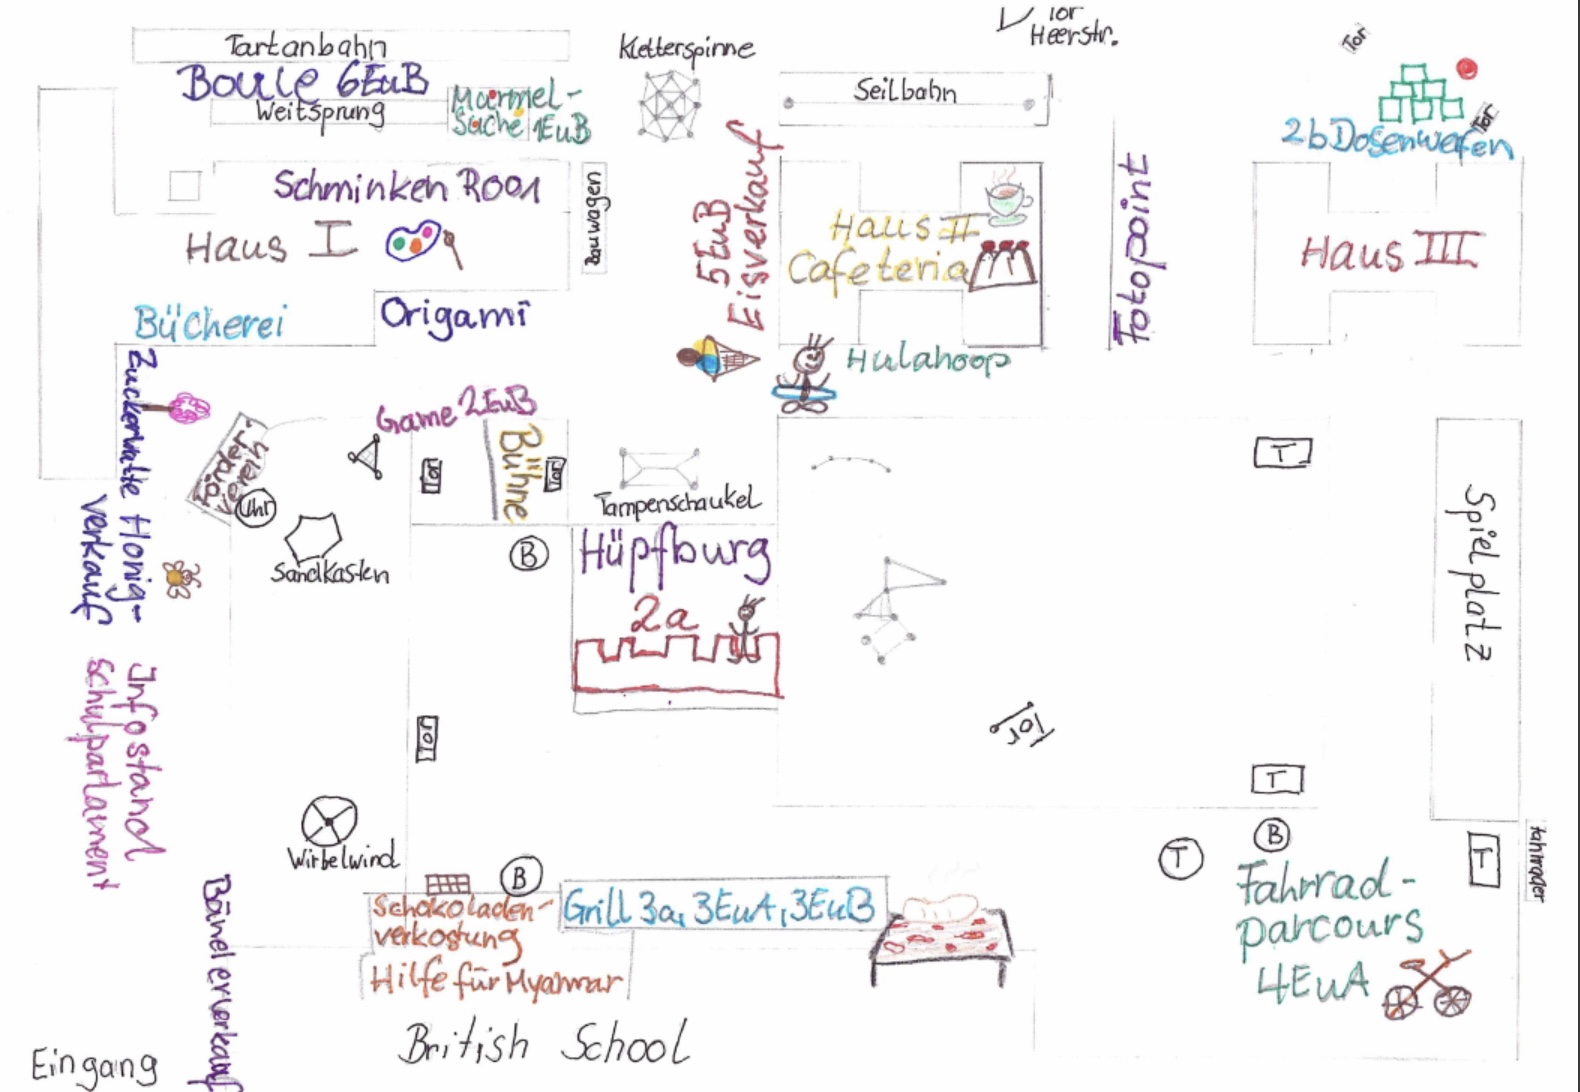 Tartanbahn
Boule 6EuB
Weitsprung
Murmel-
Suche 1EuB
Kletterspinne
Tor
Heerstr.
Seilbahn
Tor
Tor
2b Dosenwerfen
Schminken R001
Haus I
Bauwagen
5EuB
Eisverkauf
Haus II
Cafeteria
Fotopoint
Haus III
Bücherei
Origami
Hulahoop
Zuckerwatte Honig-
verkauf
Förder-
verein
Uhr
Game 2EuB
Tor
Bühne
Tor
Tampenschaukel
T
Sandkasten
B
Hüpfburg
2a
Spielplatz
Infostand
Schulparlament
Tor
Tor
T
Wirbelwind
B
T
B
T
Fahrräder
Schokoladen-
verkostung
Hilfe für Myanmar
Grill 3a, 3EuA, 3EuB
Fahrrad-
parcours
4EuA
British School
Eingang